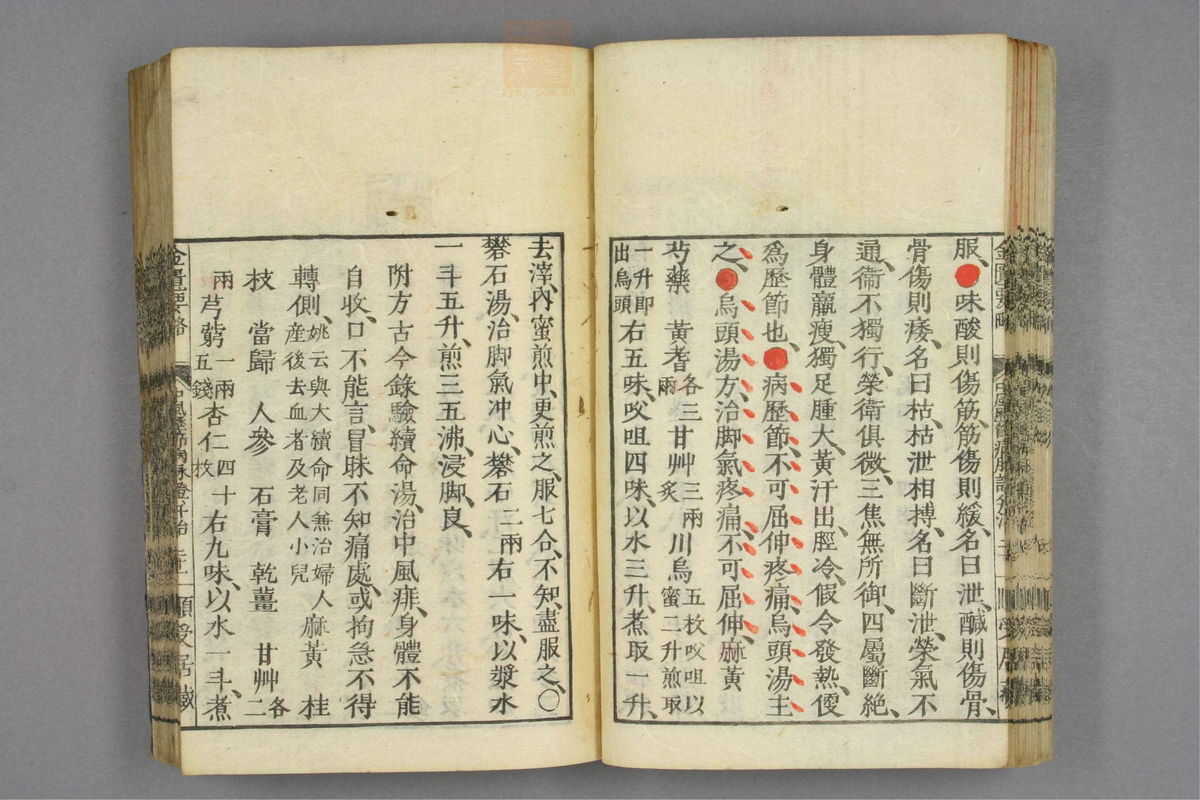 服●味酸則傷筋、筋傷則緩、名曰泄、醎則傷骨、
骨傷則痿、名曰枯、枯泄相搏、名曰斷泄、榮氣不
通、衞不獨行、榮衞俱微、三焦無所御、四屬斷絶、
身體羸瘦、獨足腫大、黃汗出、脛冷、假令發熱、便
爲歷節也●病歷節、不可屈伸疼痛、烏頭湯主
之、●烏頭湯方、治脚氣疼痛、不可屈伸、麻黃
芍藥 黃耆各三兩甘艸三兩炙川烏五枚㕮咀以蜜二升煎取
一升即出烏頭右五味、㕮咀四味、以水三升、煮取一升、
去滓、內蜜煎中、更煎之、服七合、不知、盡服之、〇
礬石湯、治脚氣冲心、礬石二兩右一味、以漿水
一斗五升、煎三五沸、浸脚、良、
附方古今錄驗續命湯、治中風痱、身體不能
自收、口不能言、冒昧不知痛處、或拘急不得
轉側、姚云與大續命同兼治婦人產後去血者及老人小兒麻黃 桂
枝 當歸 人參 石膏 乾薑 甘艸各二
兩芎藭一兩五錢杏仁四十枚右九味、以水一斗、煮